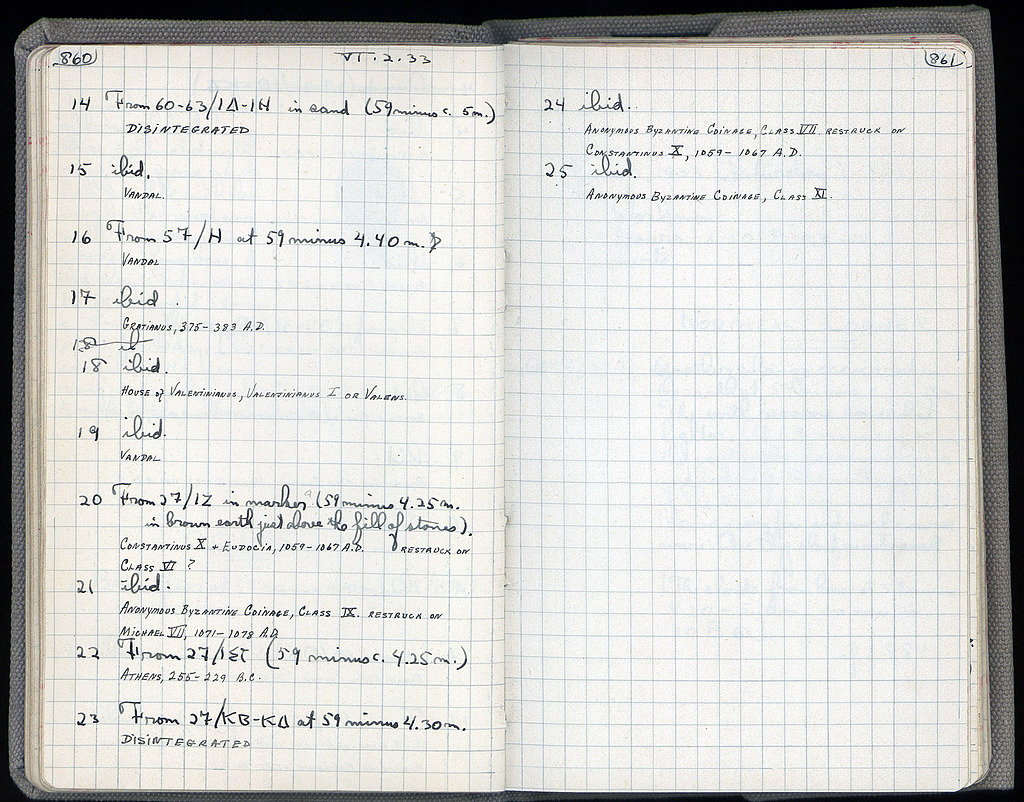 860
VI.2.33
14 From 60-63/ΙΔ-ΙΗ in sand (59 minus c. 5m.)
DISINTEGRATED
15 ibid.
VANDAL.
16 From 57/Η at 59 minus 4.40 m.
VANDAL
17 ibid.
GRATIANUS, 375-383 A.D.
18 ib
18 ibid.
HOUSE of VALENTINIANUS, VALENTINIANUS I OR VALENS.
19 ibid.
VANDAL
20 From 27/ΙΖ in (59 minus 4.25 m.
in brown earth just above the fill of stones).
CONSTANTINUS X + EUDOCIA, 1059-1067 A.D. RESTRUCK ON
CLASS VI ?
21 ibid.
ANONYMOUS BYZANTINE COINAGE, CLASS IX. RESTRUCK ON
MICHAEL VII, 1071-1078 A.D.
22 From 27/ (59 minus c. 4.25 m.)
ATHENS, 255-229 B.C.
23 From 27/ΚΒ-ΚΔ at 59 minus 4.30 m.
DISINTEGRATED
861
24 ibid.
ANONYMOUS BYZANTINE COINAGE, CLASS VII. RESTRUCK ON
CONSTANTINUS X, 1059-1067 A.D.
25 ibid.
ANONYMOUS BYZANTINE COINAGE, CLASS XI.